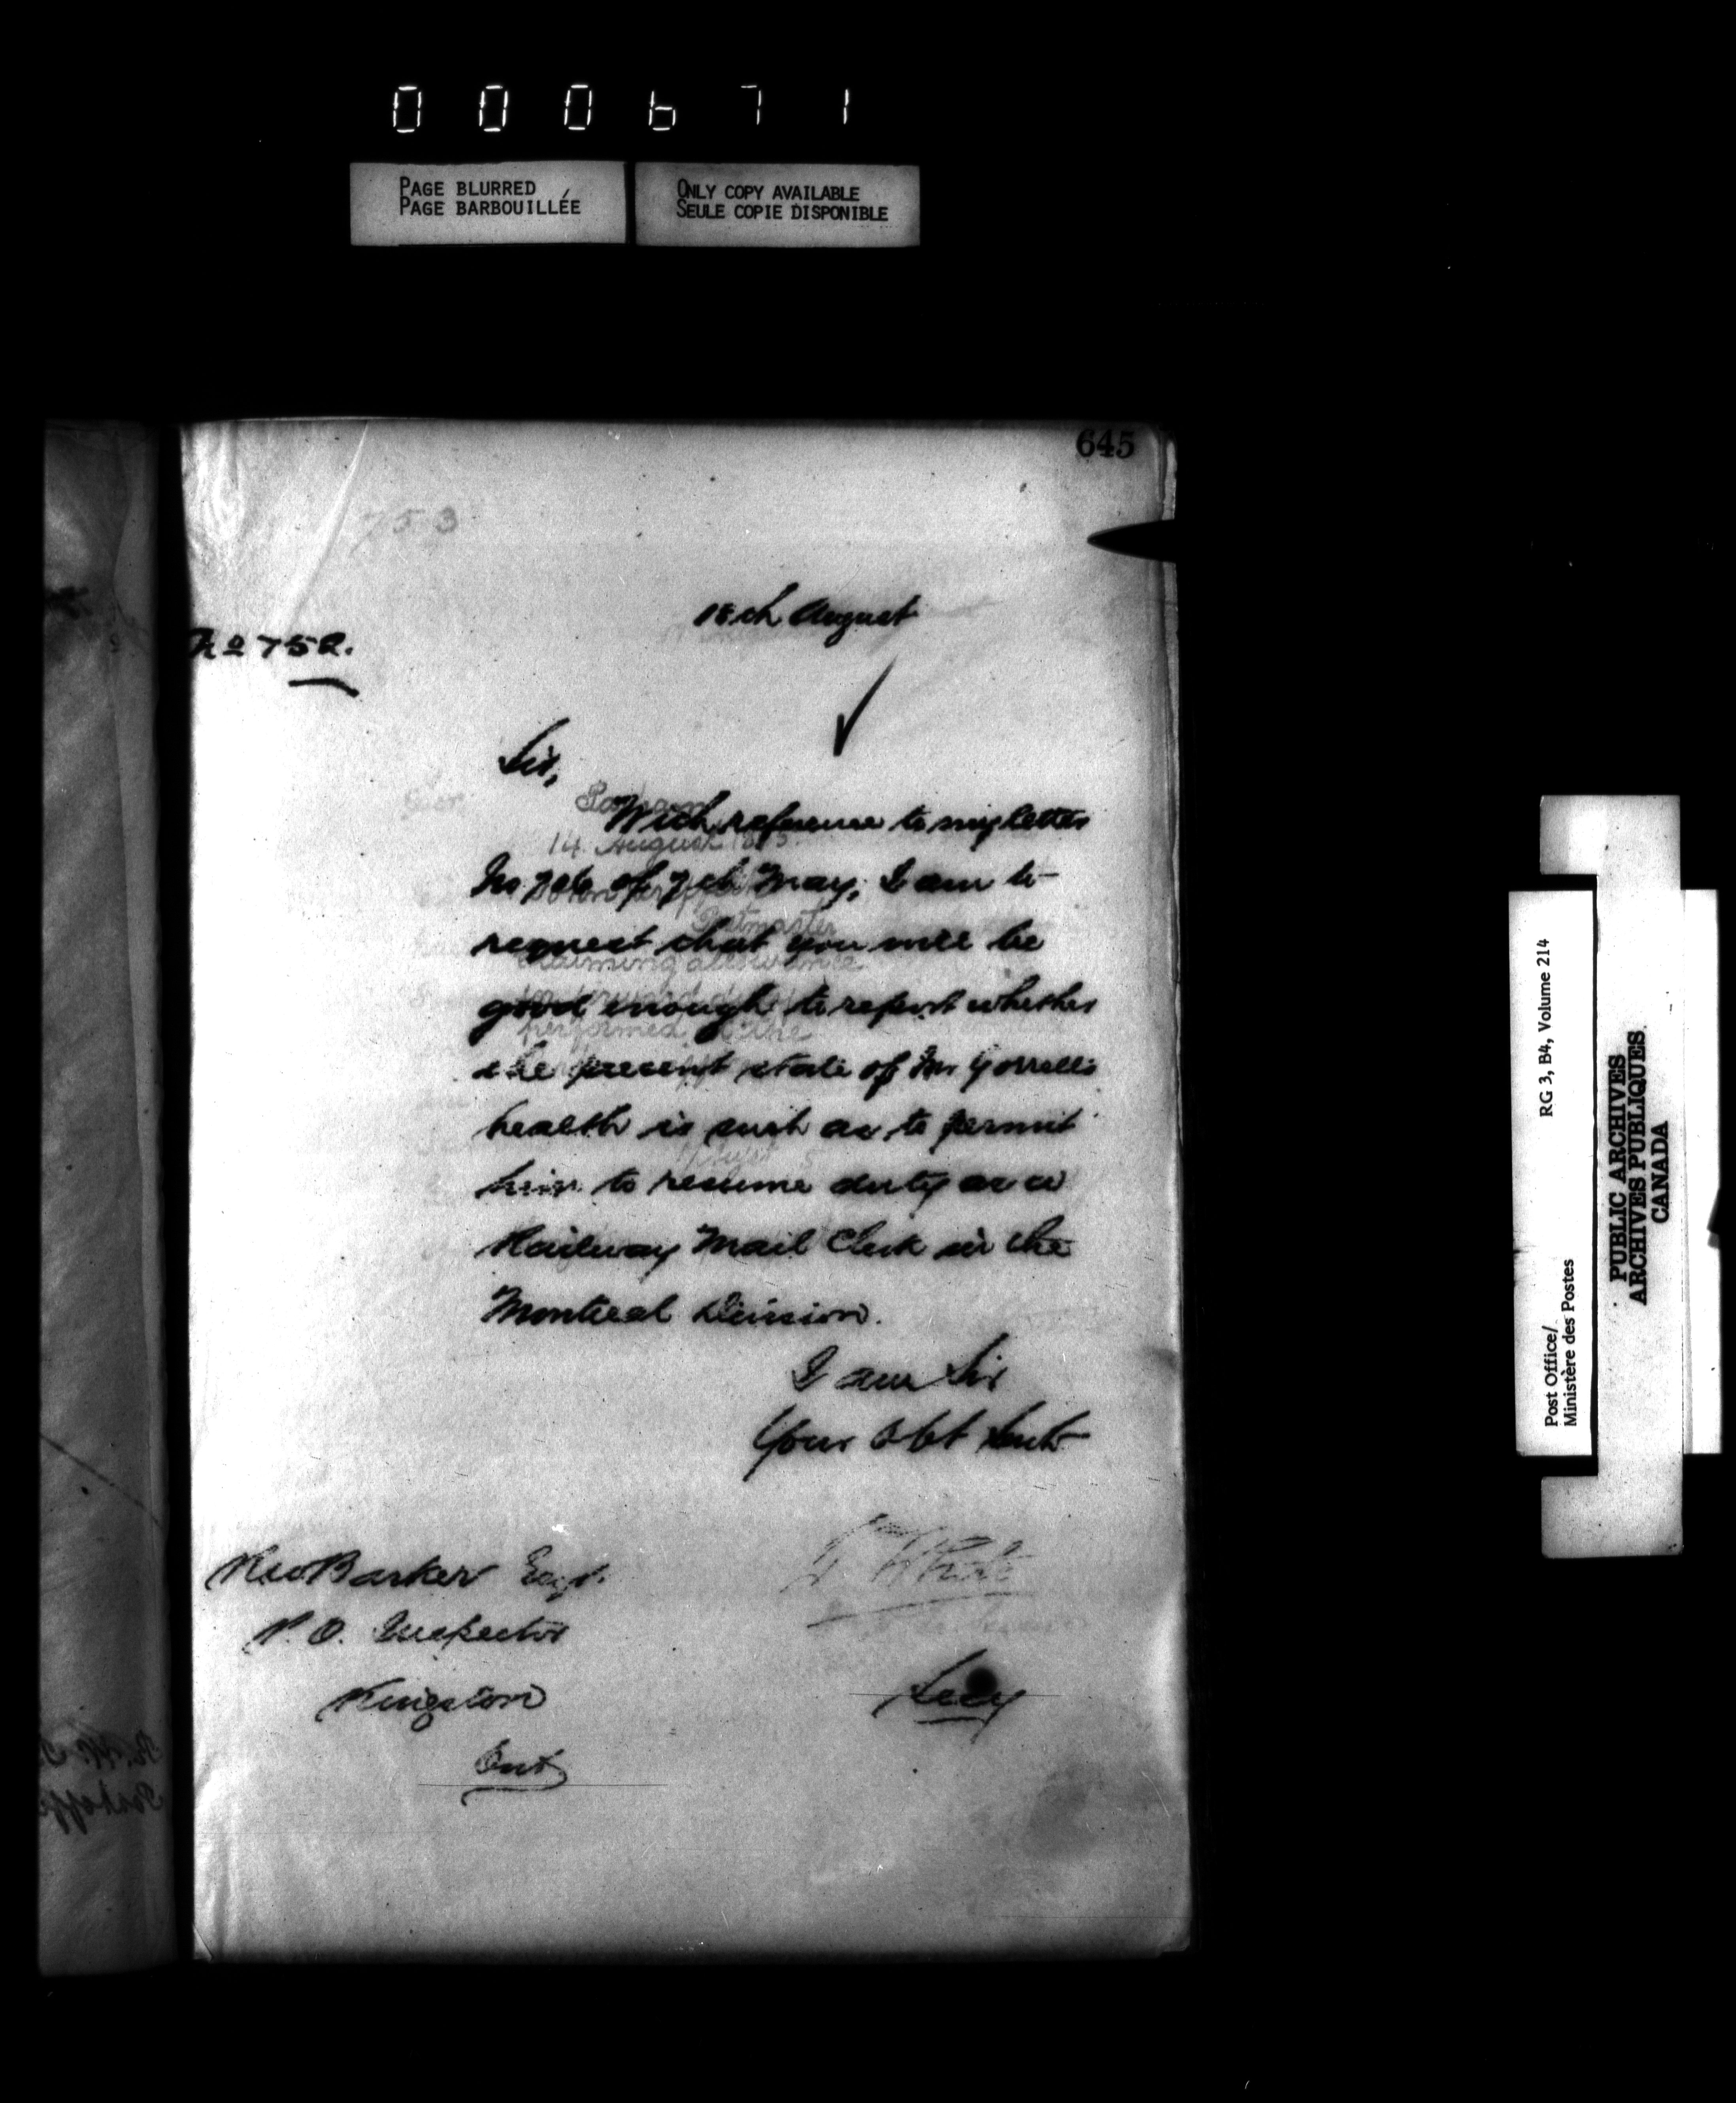 000671
PAGE BLURRED
PAGE BARBOUILLÉE
ONLY COPY AVAILABLE
SEULE COPIE DISPONIBLE
645
753
18th August
No 752.
Sir,
With reference to my letter
No 706 of 7th May, I am to
request that you will be
good enough to report whether
the present state of Mr Gorrell's
health is such as to permit
him to resume duty as a
Railway Mail Clerk in the
Montreal Division.
I am Sir
Your Obt Servt
W White
Secy
Barker Esqr.
P. O. Inspector
Kingston
Ont
14 August
Postmaster
claiming allowance
performed
Post Office/
Ministère des Postes
RG 3, B4, Volume 214
PUBLIC ARCHIVES
ARCHIVES PUBLIQUES
CANADA